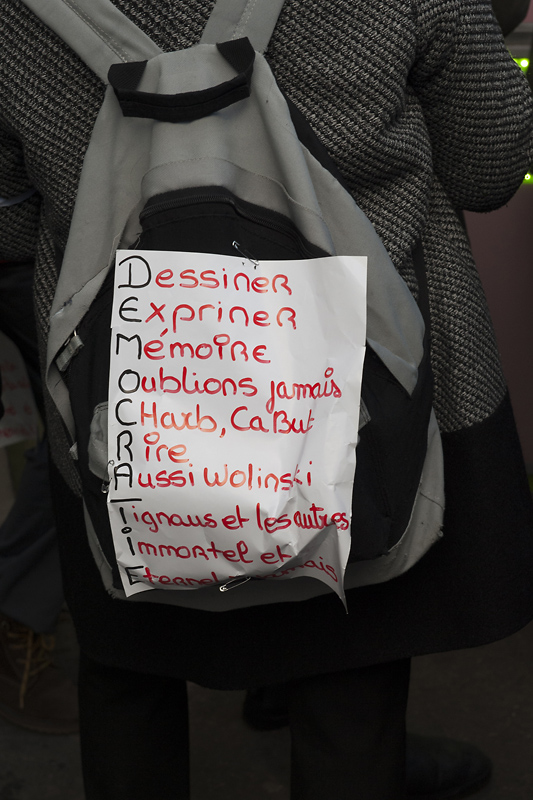 Dessiner
Expriner
Mémoire
Oublions jamais
CHarb, CaBut
Rire
Aussi Wolinski
Tignous et les autres
Immortel et
Eternel